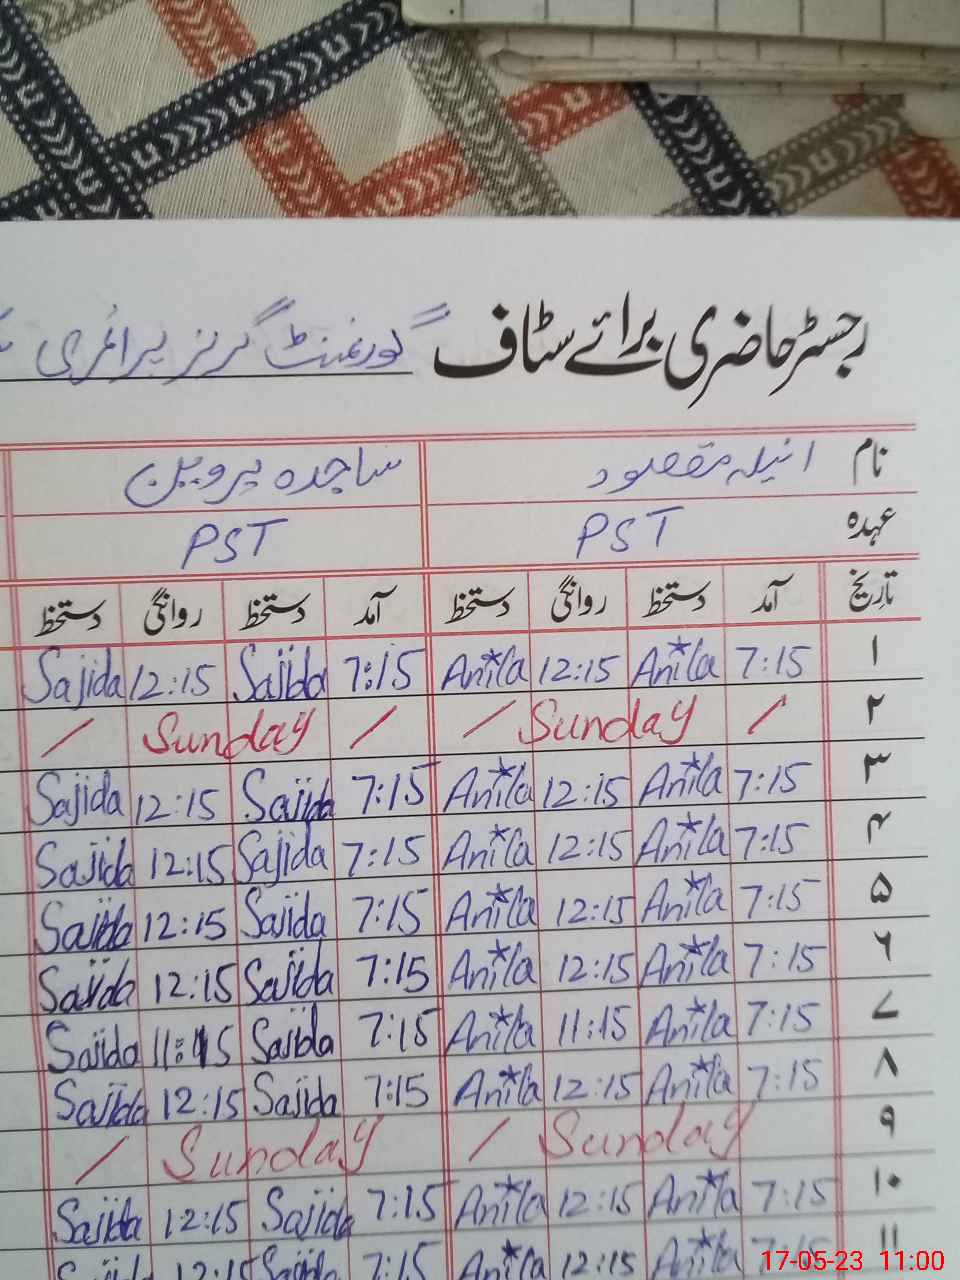 رجسٹر حاضری برائے سٹاف گورنمنٹ گرلز پرائمری
نام انیلہ مقصود ساجدہ پروین
عہدہ PST PST
تاریخ آمد دستخط روانگی دستخط آمد دستخط روانگی دستخط
۱ 7:15 Anila 12:15 Anila 7:15 Sajida 12:15 Sajida
۲ / Sunday / / Sunday /
۳ 7:15 Anila 12:15 Anila 7:15 Sajida 12:15 Sajida
۴ 7:15 Anila 12:15 Anila 7:15 Sajida 12:15 Sajida
۵ 7:15 Anila 12:15 Anila 7:15 Sajida 12:15 Sajida
۶ 7:15 Anila 12:15 Anila 7:15 Sajida 12:15 Sajida
۷ 7:15 Anila 11:15 Anila 7:15 Sajida 11:15 Sajida
۸ 7:15 Anila 12:15 Anila 7:15 Sajida 12:15 Sajida
۹ Sunday / Sunday /
۱۰ 7:15 Anila 12:15 Anila 7:15 Sajida 12:15 Sajida
۱۱ 7:15 Anila 12:15 Anila 7:15 Sajida 12:15 Sajida
17-05-23 11:00